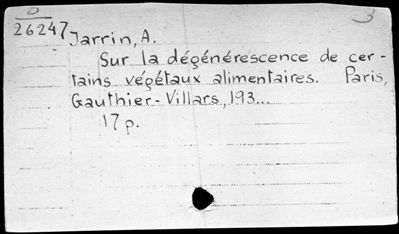 D
26247
3
Jarrin, A.
Sur la dégénérescence de cer-
tains végétaux alimentaires. Paris,
Gauthier-Villars, 193...
17 p.